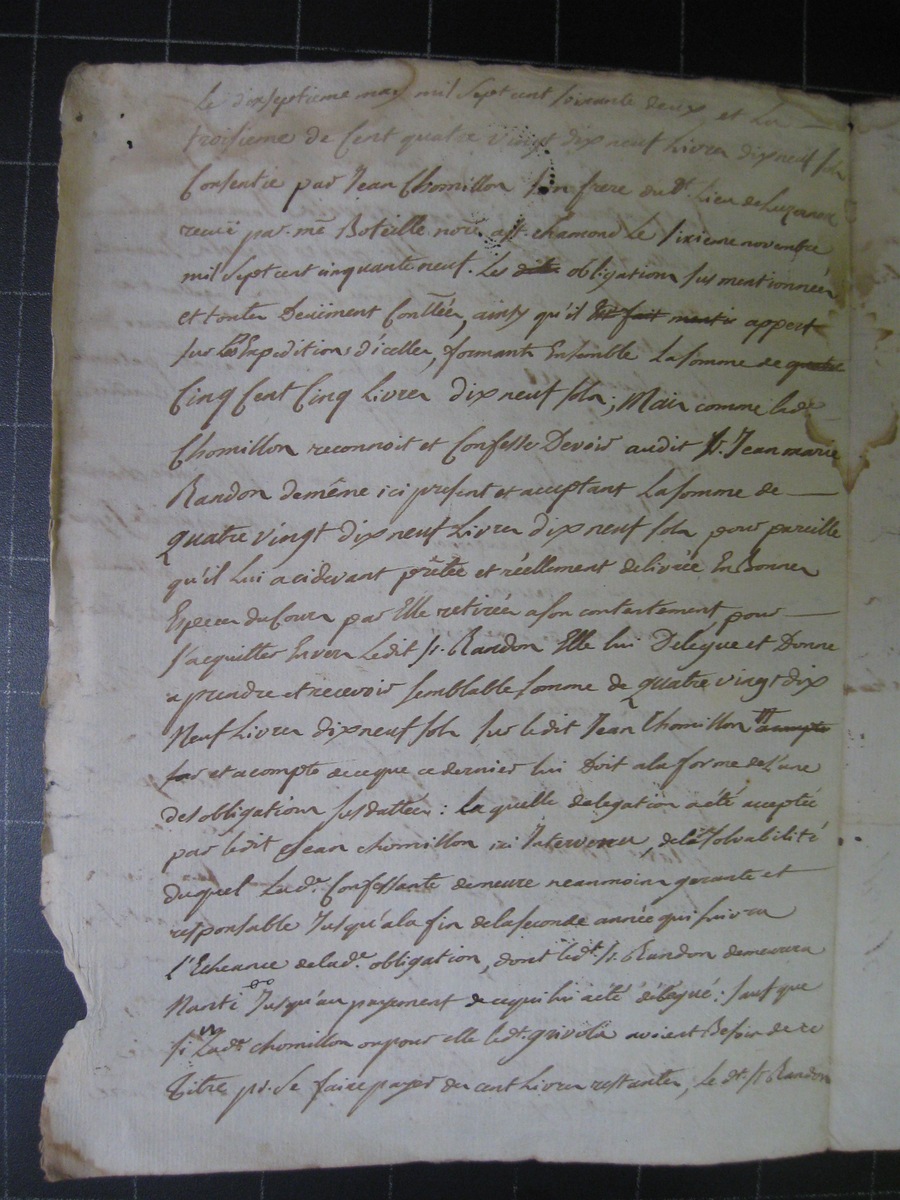 Le dixseptieme may mil sept cent soixante deux, et La
troisieme de Cent quatre vingt dix neuf Livres dix neuf sols
Consentie par Jean Chomillon son frere dud.t Lieu de
recüe par me Boteille nore a st. chamond Le sixieme novembre
mil sept cent cinquante neuf. Les dites obligations sus mentionnées
et toutes Deüiment Conllées, ainsy qu'il appert
sur Les Expeditions d'icelles, formants Ensemble La somme de quatre
Cinq Cent Cinq Livres dix neuf sols; Mais comme lad.e
Chomillon reconnoit et Confesse Devoir audit Sr. Jean marie
Randon demême ici present et acceptant La somme de
quatre vingt dix neuf Livres dix neuf sols pour pareille
qu'il Lui a cidevant prêtée et réellement delivrée En Bonnes
Especes du Cours par Elle retirées a son contentement pour
s'acquitter Envers Ledit Sr. Randon Elle lui Delegue et Donne
a prendre et recevoir semblable somme de quatre vingt dix
Neuf Livres dix neuf sols sur ledit Jean Chomillon a compte
sur et a compte de ceque ce dernier lui Doit a la forme de L'une
des obligations susdattées: la quelle delegation a été acceptée
par ledit Jean chomillon ici Intervenu, de la solvabilité
duquel Lad.e Confessante demeure neanmoins garante et
responsable Jusqu'a la fin de la seconde année qui suivra
l'Echeance de lad.e obligation, dont led.t Sr. Randon demeurera
Nanti Jusqu'au payement de cequi lui a été delegué: sauf que
si Lad.e chomillon ou pour elle led.t grivola avoient Besoin de ce
Titre pr. se faire payer des cent Livres restantes, Le d.t Sr. Randon